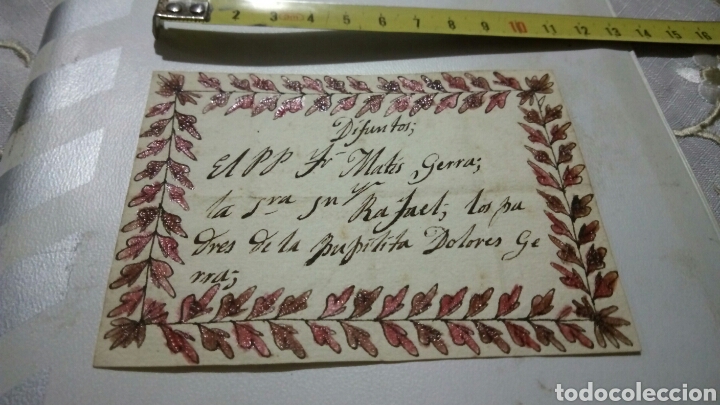 2 3 4 5 6 7 8 9 10 11 12 13 14 15 16
Difuntos;
El PP Fr Matis Gerra;
la Sra Sn Rafael; los pa
dres de la pupilita Dolores Ge
rra;
todocoleccion